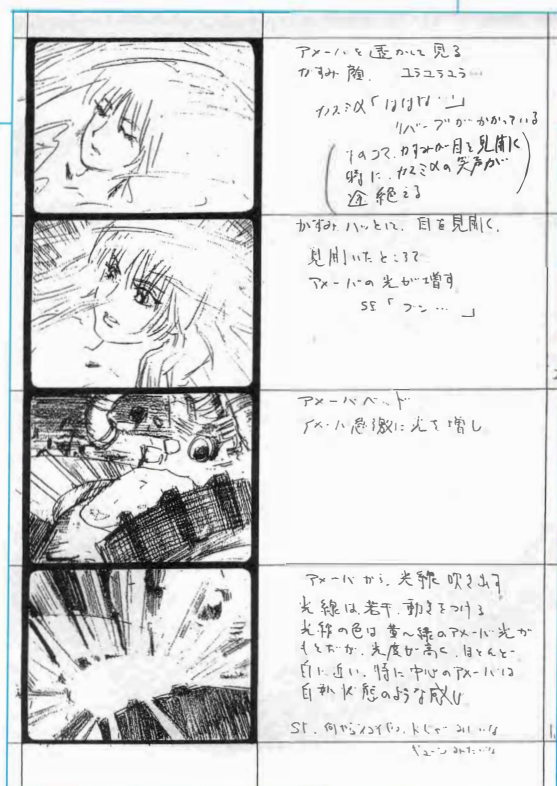 アメーバを透かして見る
かすみ顔. ユラユラユラ…
カスミα「ははは…」
リバーブがかかっている
かすみが目を見開く
時に、カスミαの笑声が
途絶える
かすみハッとして、目を見開く.
見開いたところで
アメーバの光が増す
SE「ブン…」
アメーバベッド
アメーバ急激に光を増し
アメーバから. 光線吹き出す
光線は若干、動きをつける
光線の色は黄〜緑のアメーバ光が
もとだが、光度が高く、ほとんど
白に近い. 特に中心のアメーバは
白熱状態のような感じ